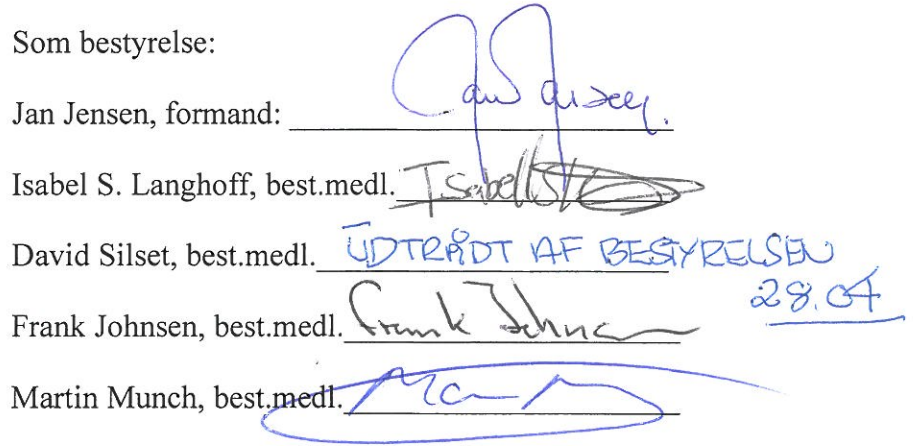 Som bestyrelse:
Jan Jensen, formand: Jan Jensen.
Isabel S. Langhoff, best.medl. Isabel S
David Silset, best.medl. UDTRÅDT AF BESTYRELSEN
28.04
Frank Johnsen, best.medl. Frank Johnsen
Martin Munch, best.medl.